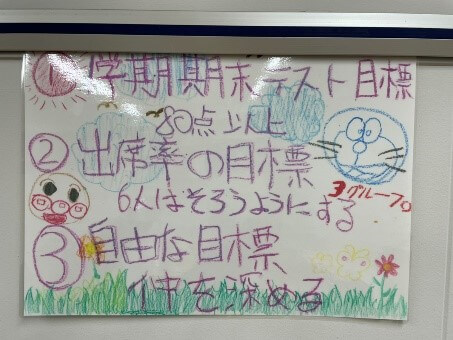 ① 学期期末テスト目標
80点以上
② 出席率の目標
6人はそろうようにする
3グループ
③ 自由な目標
を深める